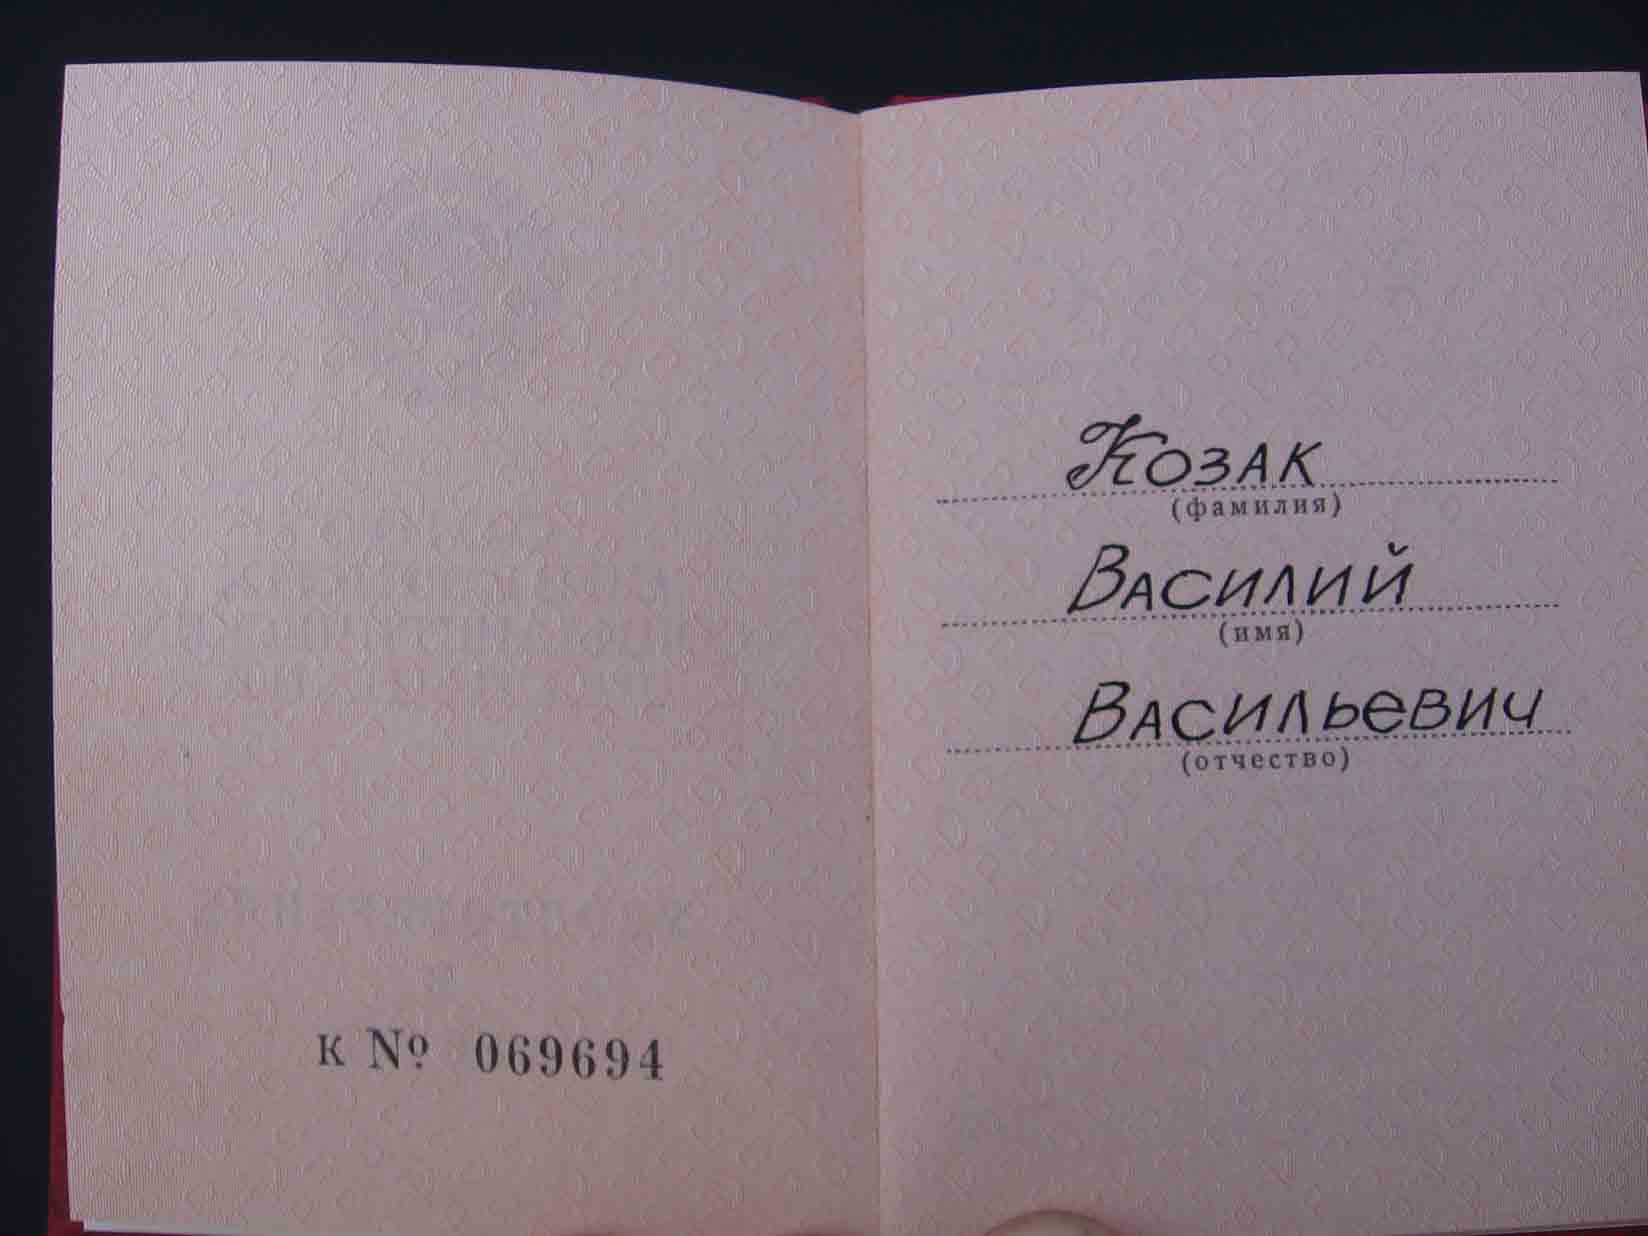 к № 069694
Козак
(фамилия)
Василий
(имя)
Васильевич
(отчество)